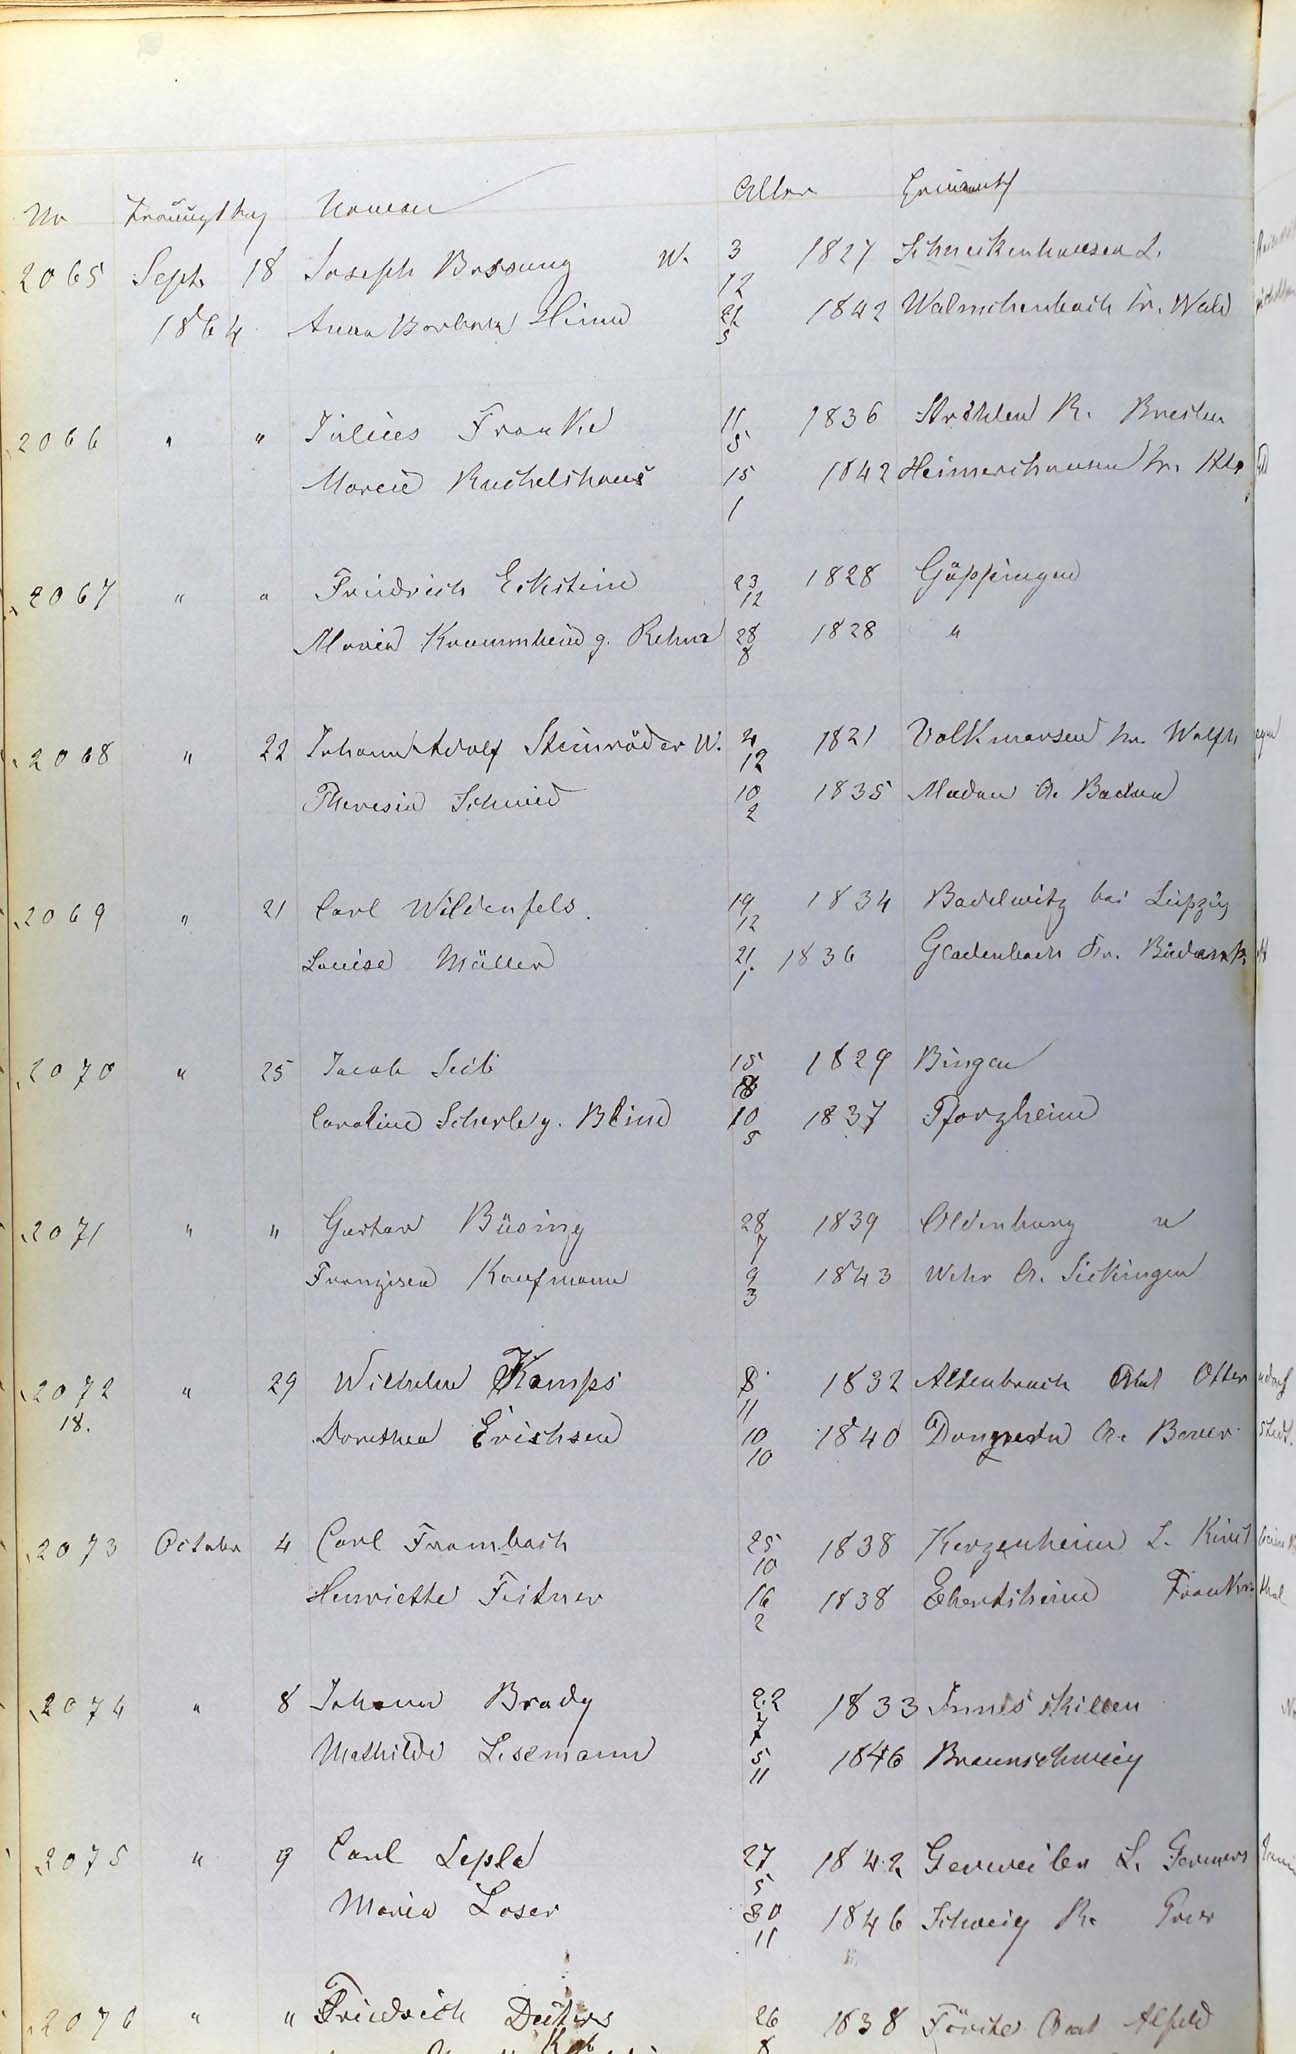 No Trauungstag Namen Alter Heimath
2065 Sept. 18 Joseph Bossung W. 3 1827 Schneckenhausen L.
12
1864 Anna Barbara Hinn 21 1842 Walmichenbach Kr. Wald
5
2066 " " Julius Franke 11 1836 Strehlen R. Breslau
5
Marie Ruchelshaus 15 1842 Heimershausen Kr.
1
2067 " " Friedrich Eckstein 23 1828 Göppingen
12
Maria Krummhein g. Rehm 28 1828 "
8
2068 " 22 Johann Adolf Steinröder W. 4 1821 Volkmarsen Kr. Wolfh agen
12
Theresia Schmid 10 1835 A. Baden
2
2069 " 21 Carl Wildenfels. 19 1834 bei Leipzig
12
Louise Müller 21 1836 Gladenbach Kr. Biedenk
1
2070 " 25 Jacob Seib 15 1829 Bingen
8
Caroline Scherle g. Blind 10 1837 Pforzheim
5
2071 " " Gustav Büsing 28 1839 Oldenburg
7
Franzisca Kaufmann 9 1843 Wehr A. Sickingen
3
2072 " 29 Wilhelm Kamps 8 1832 Altenbruch Amt Otter ndorf
11
18. Dorothea Erichsen 10 1840 A.
10
2073 October 4 Carl Frambach 25 1838 Kerzenheim L.
10
Henriette Feitner 16 1838 Ebertsheim Franken thal
2
2074 " 8 Johann Brady 22 1833 Innis skillen
7
Mathilde Lesemann 5 1846 Braunschweig
11
2075 " 9 Carl Lepla 27 1842 L. Germers
5
Maria Loser 30 1846 Schweig R. Trier
11
2076 " " Friedrich Deiters 26 1838 Förste Amt Alfeld
8